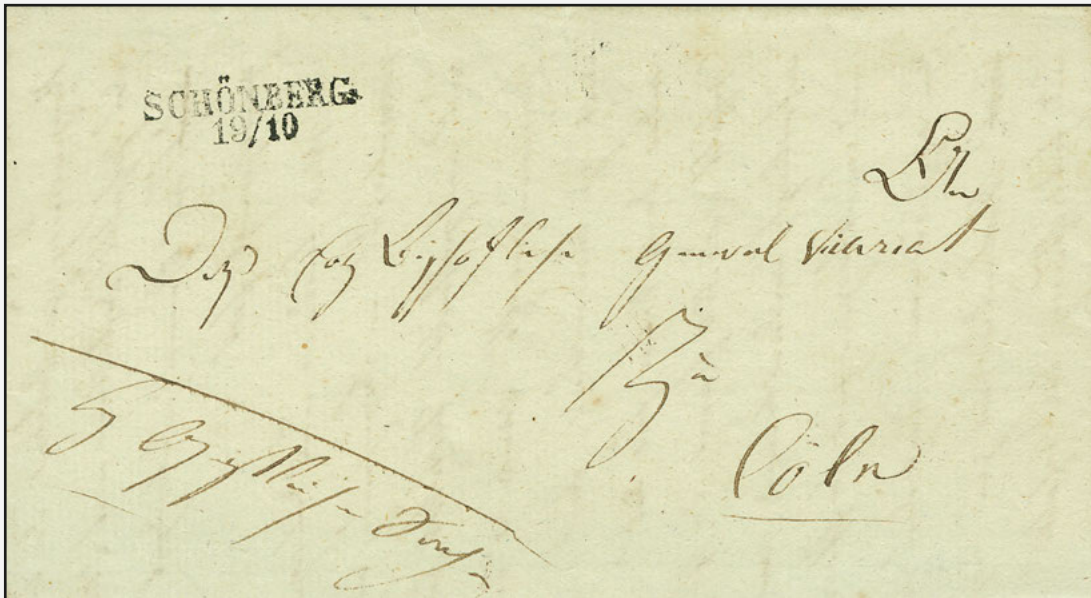 SCHÖNBERG.
19/10
An
Das Erzbischöfliche General Vicariat
Zu
Cöln
Geistliche